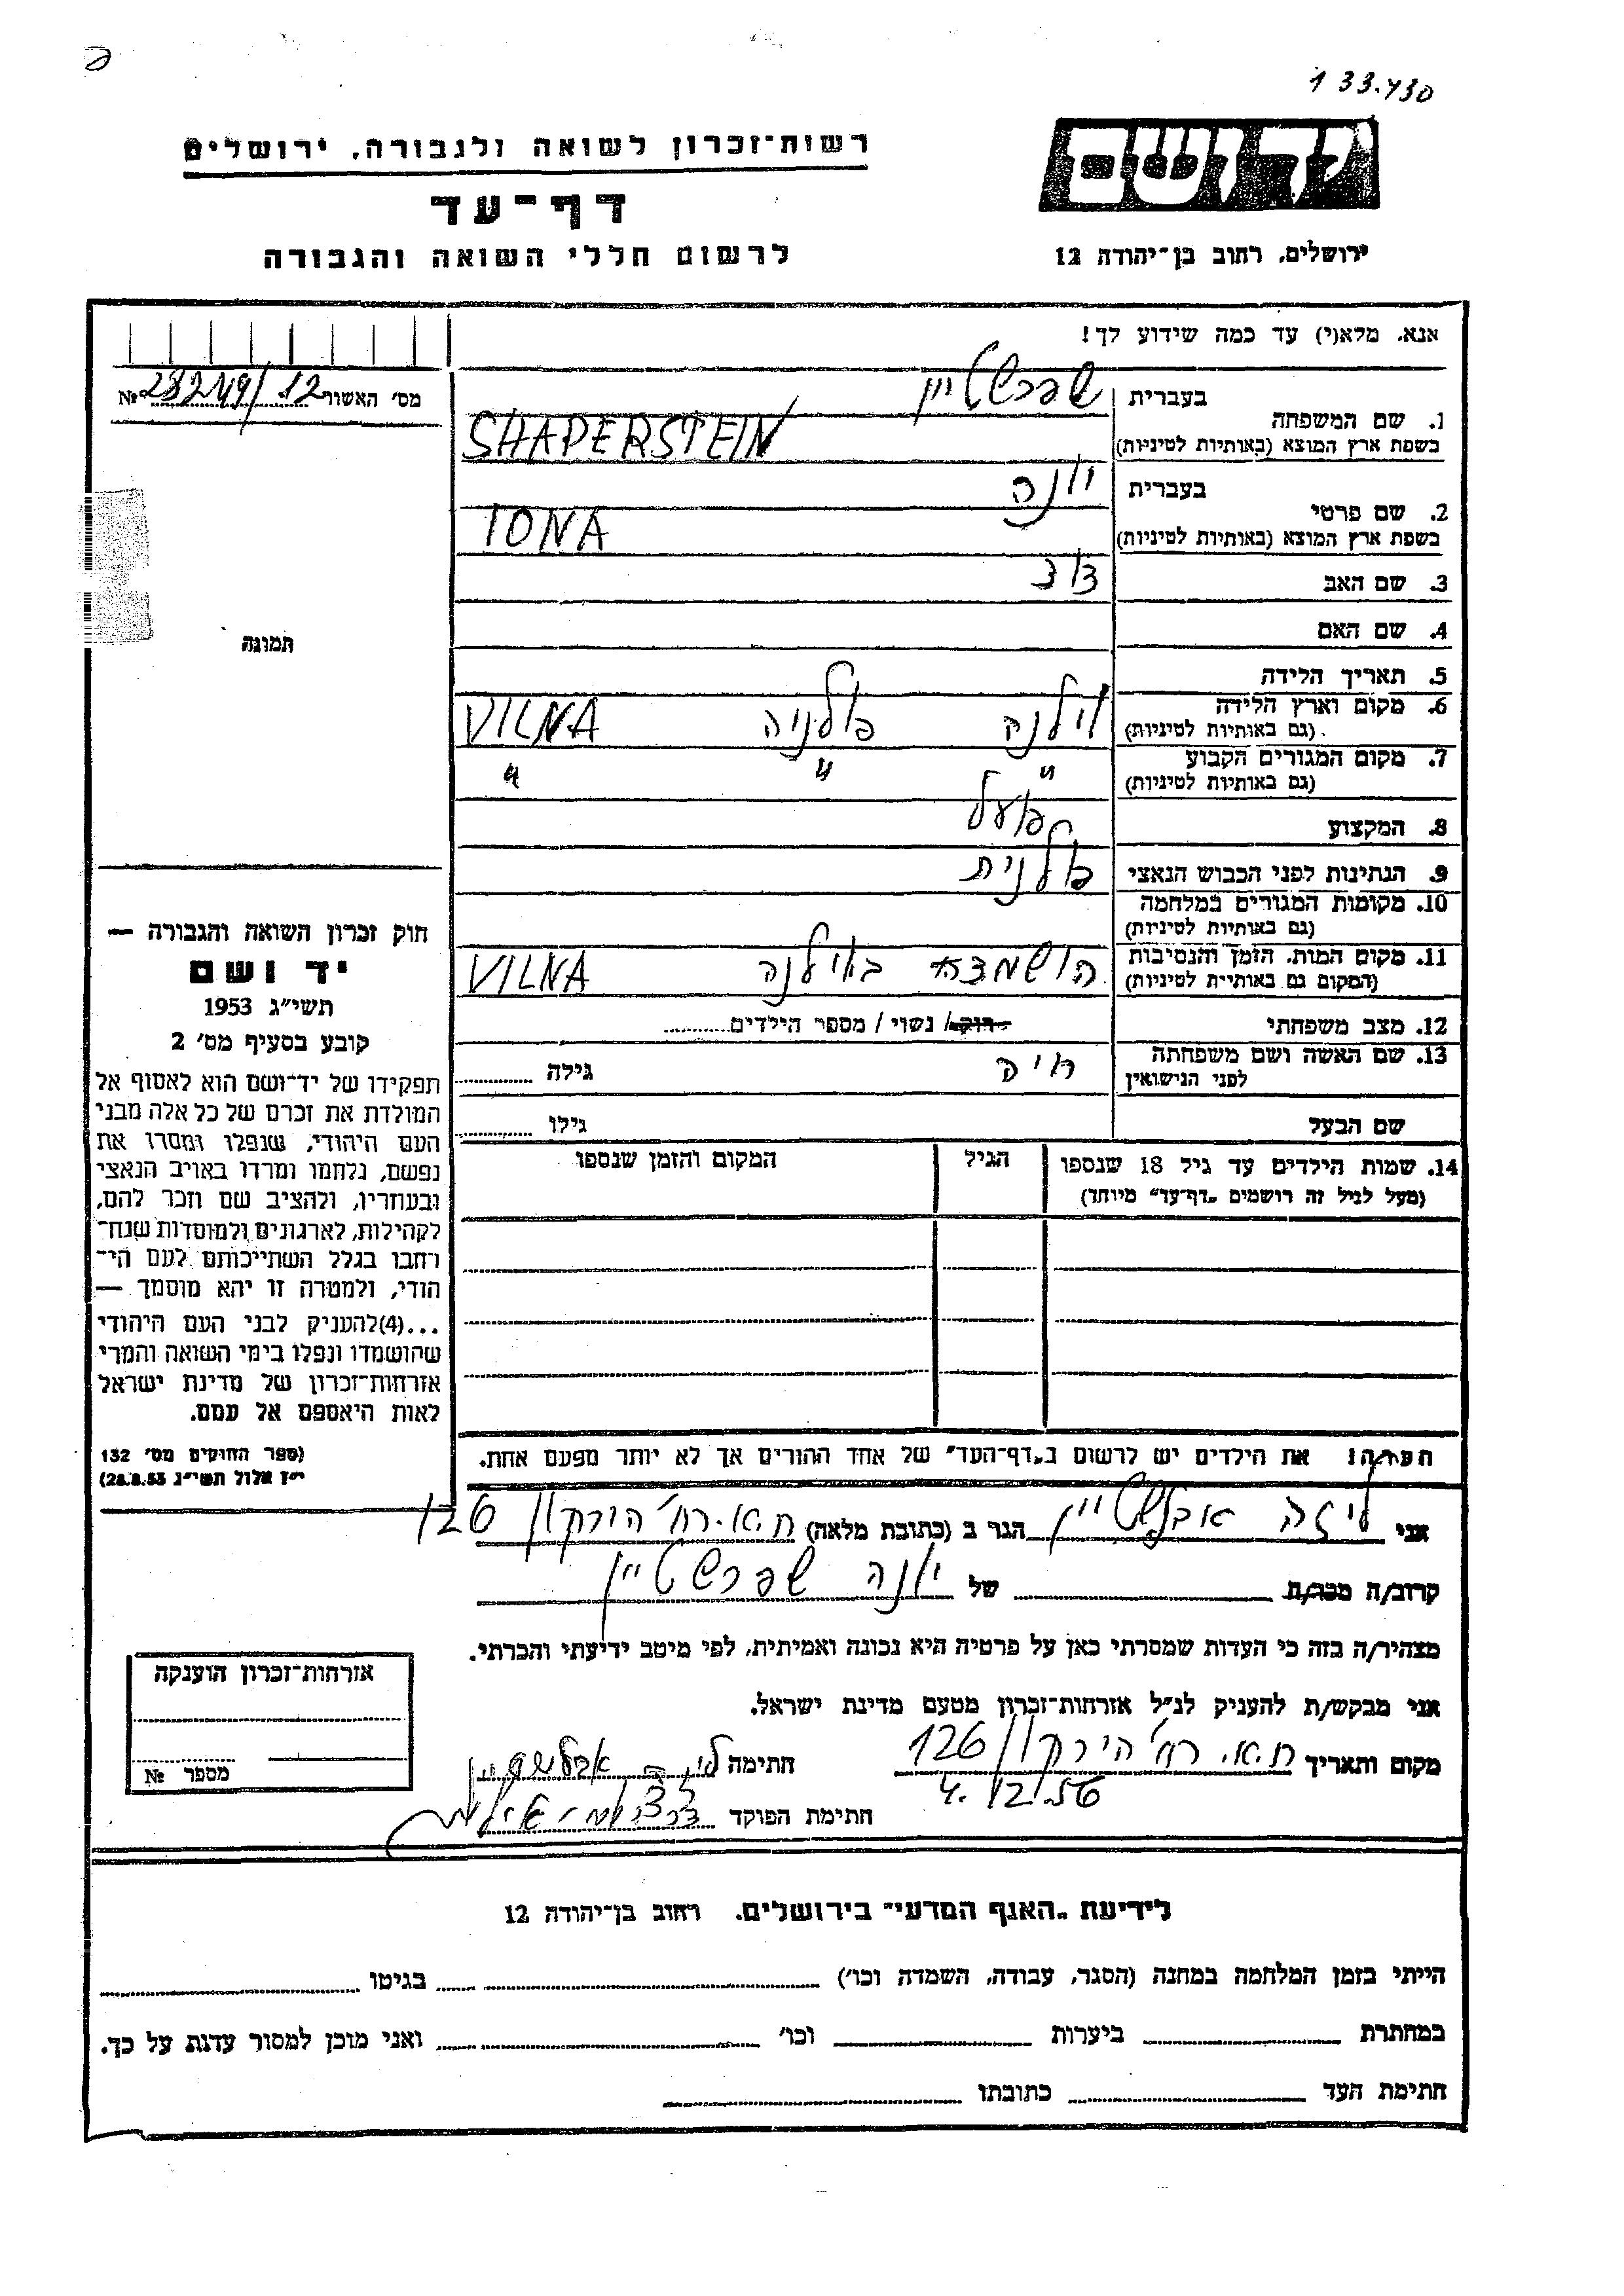 133.430
רשות־זכרון לשואה ולגבורה, ירושלים
יד ושם
דף־עד
לרשום חללי השואה והגבורה
ירושלים, רחוב בן־יהודה 12
אנא, מלא(י) עד כמה שידוע לך!
מס' האשור №
1. שם המשפחה
בעברית
שפרשטיין
בשפת ארץ המוצא (באותיות לטיניות)
SHAPERSTEIN
2. שם פרטי
בעברית
יונה
בשפת ארץ המוצא (באותיות לטיניות)
IONA
3. שם האב
דוד
4. שם האם
תמונה
5. תאריך הלידה
6. מקום וארץ הלידה
(גם באותיות לטיניות)
וילנה פולניה VILNA
7. מקום המגורים הקבוע
(גם באותיות לטיניות)
" " "
8. המקצוע
פועל
9. הנתינות לפני הכבוש הנאצי
פולנית
10. מקומות המגורים במלחמה
(גם באותיות לטיניות)
11. מקום המות, הזמן והנסיבות
(המקום גם באותיות לטיניות)
הושמד בוילנה VILNA
12. מצב משפחתי
רווק / נשוי / מספר הילדים
13. שם האשה ושם משפחתה
לפני הנישואין
חיה
גילה
שם הבעל
גילו
14. שמות הילדים עד גיל 18 שנספו
(מעל לגיל זה רושמים „דף־עד" מיוחד)
הגיל
המקום והזמן שנספו
חוק זכרון השואה והגבורה —
יד ושם
תשי"ג 1953
קובע בסעיף מס' 2
תפקידו של יד־ושם הוא לאסוף אל
המולדת את זכרם של כל אלה מבני
העם היהודי, שנפלו ומסרו את
נפשם, נלחמו ומרדו באויב הנאצי
ובעוזריו, ולהציב שם וזכר להם,
לקהילות, לארגונים ולמוסדות שנח־
רחבו בגלל השתייכותם לעם הי־
הודי, ולמטרה זו יהא מוסמך —
...(4)להעניק לבני העם היהודי
שהושמדו ונפלו בימי השואה והמרי
אזרחות־זכרון של מדינת ישראל
לאות היאספם אל עמם.
(ספר החוקים מס' 132
י"ז אלול תשי"ג 28.8.53)
הערה! את הילדים יש לרשום ב„דף־העד" של אחד ההורים אך לא יותר מפעם אחת.
אני ליזה אבלשטיין הגר ב (כתובת מלאה) ת.א. רח' הירקון 126
קרוב/ה מכר/ת של יונה שפרשטיין
מצהיר/ה בזה כי העדות שמסרתי כאן על פרטיה היא נכונה ואמיתית, לפי מיטב ידיעתי והכרתי.
אני מבקש/ת להעניק לנ"ל אזרחות־זכרון מטעם מדינת ישראל.
מקום ותאריך ת.א. רח' הירקון 126
4.12.56
חתימה
חתימת הפוקד
אזרחות־זכרון הוענקה
מספר №
לידיעת „האגף המדעי" בירושלים, רחוב בן־יהודה 12
הייתי בזמן המלחמה במחנה (הסגר, עבודה, השמדה וכו') בגיטו
במחתרת ביערות וכו' ואני מוכן למסור עדות על כך.
חתימת העד כתובתו